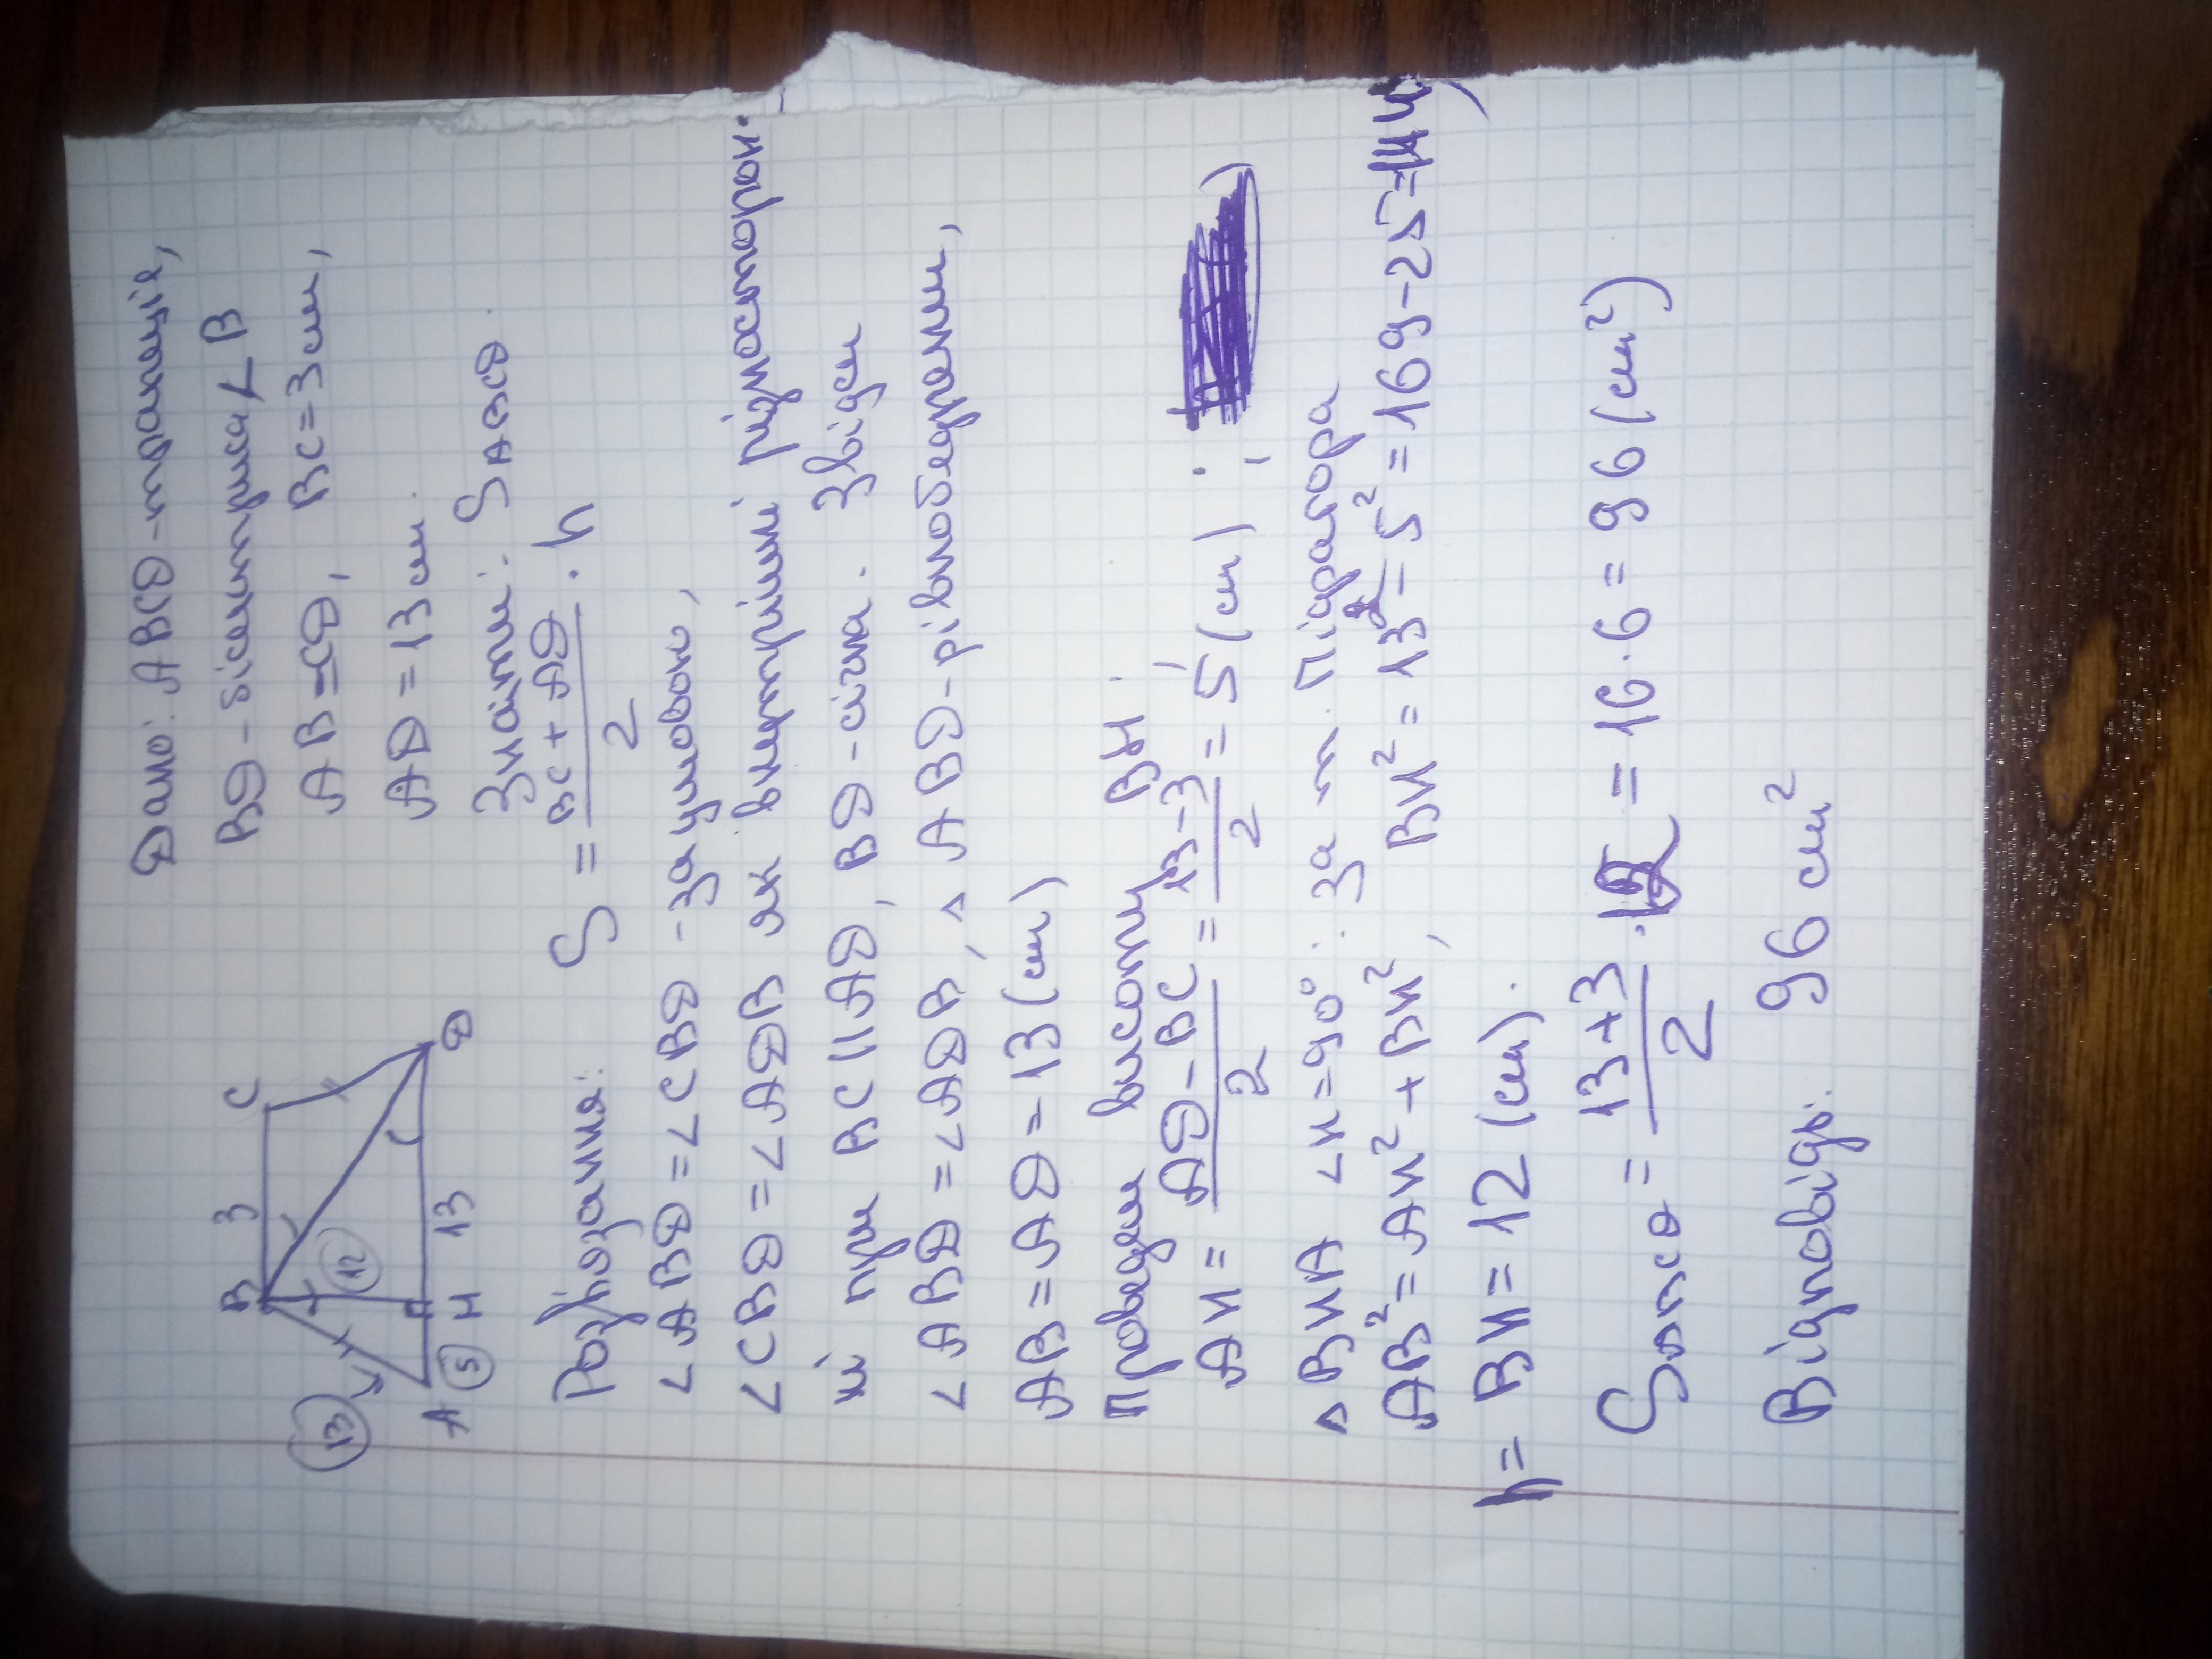 Дано: ABCD - трапеція,
BD - бісектриса ∠B
AB = CD, BC = 3 см,
AD = 13 см.
Знайти: S ABCD.
B 3 C
13 12
A 5 H 13 D
S = (BC + AD)/2 · h
Розв'язання:
∠ABD = ∠CBD - за умовою,
∠CBD = ∠ADB як внутрішні різносторон-
ні при BC || AD, BD - січна. Звідси
∠ABD = ∠ADB, △ABD - рівнобедрений,
AB = AD = 13 (см)
Проведем висоту BH.
AH = (AD - BC)/2 = (13 - 3)/2 = 5 (см)
△BHA ∠H = 90°: За т. Піфагора
AB² = AH² + BH², BH² = 13² - 5² = 169 - 25 = 144
h = BH = 12 (см).
S ABCD = (13 + 3)/2 · 12 = 16 · 6 = 96 (см²)
Відповідь: 96 см²